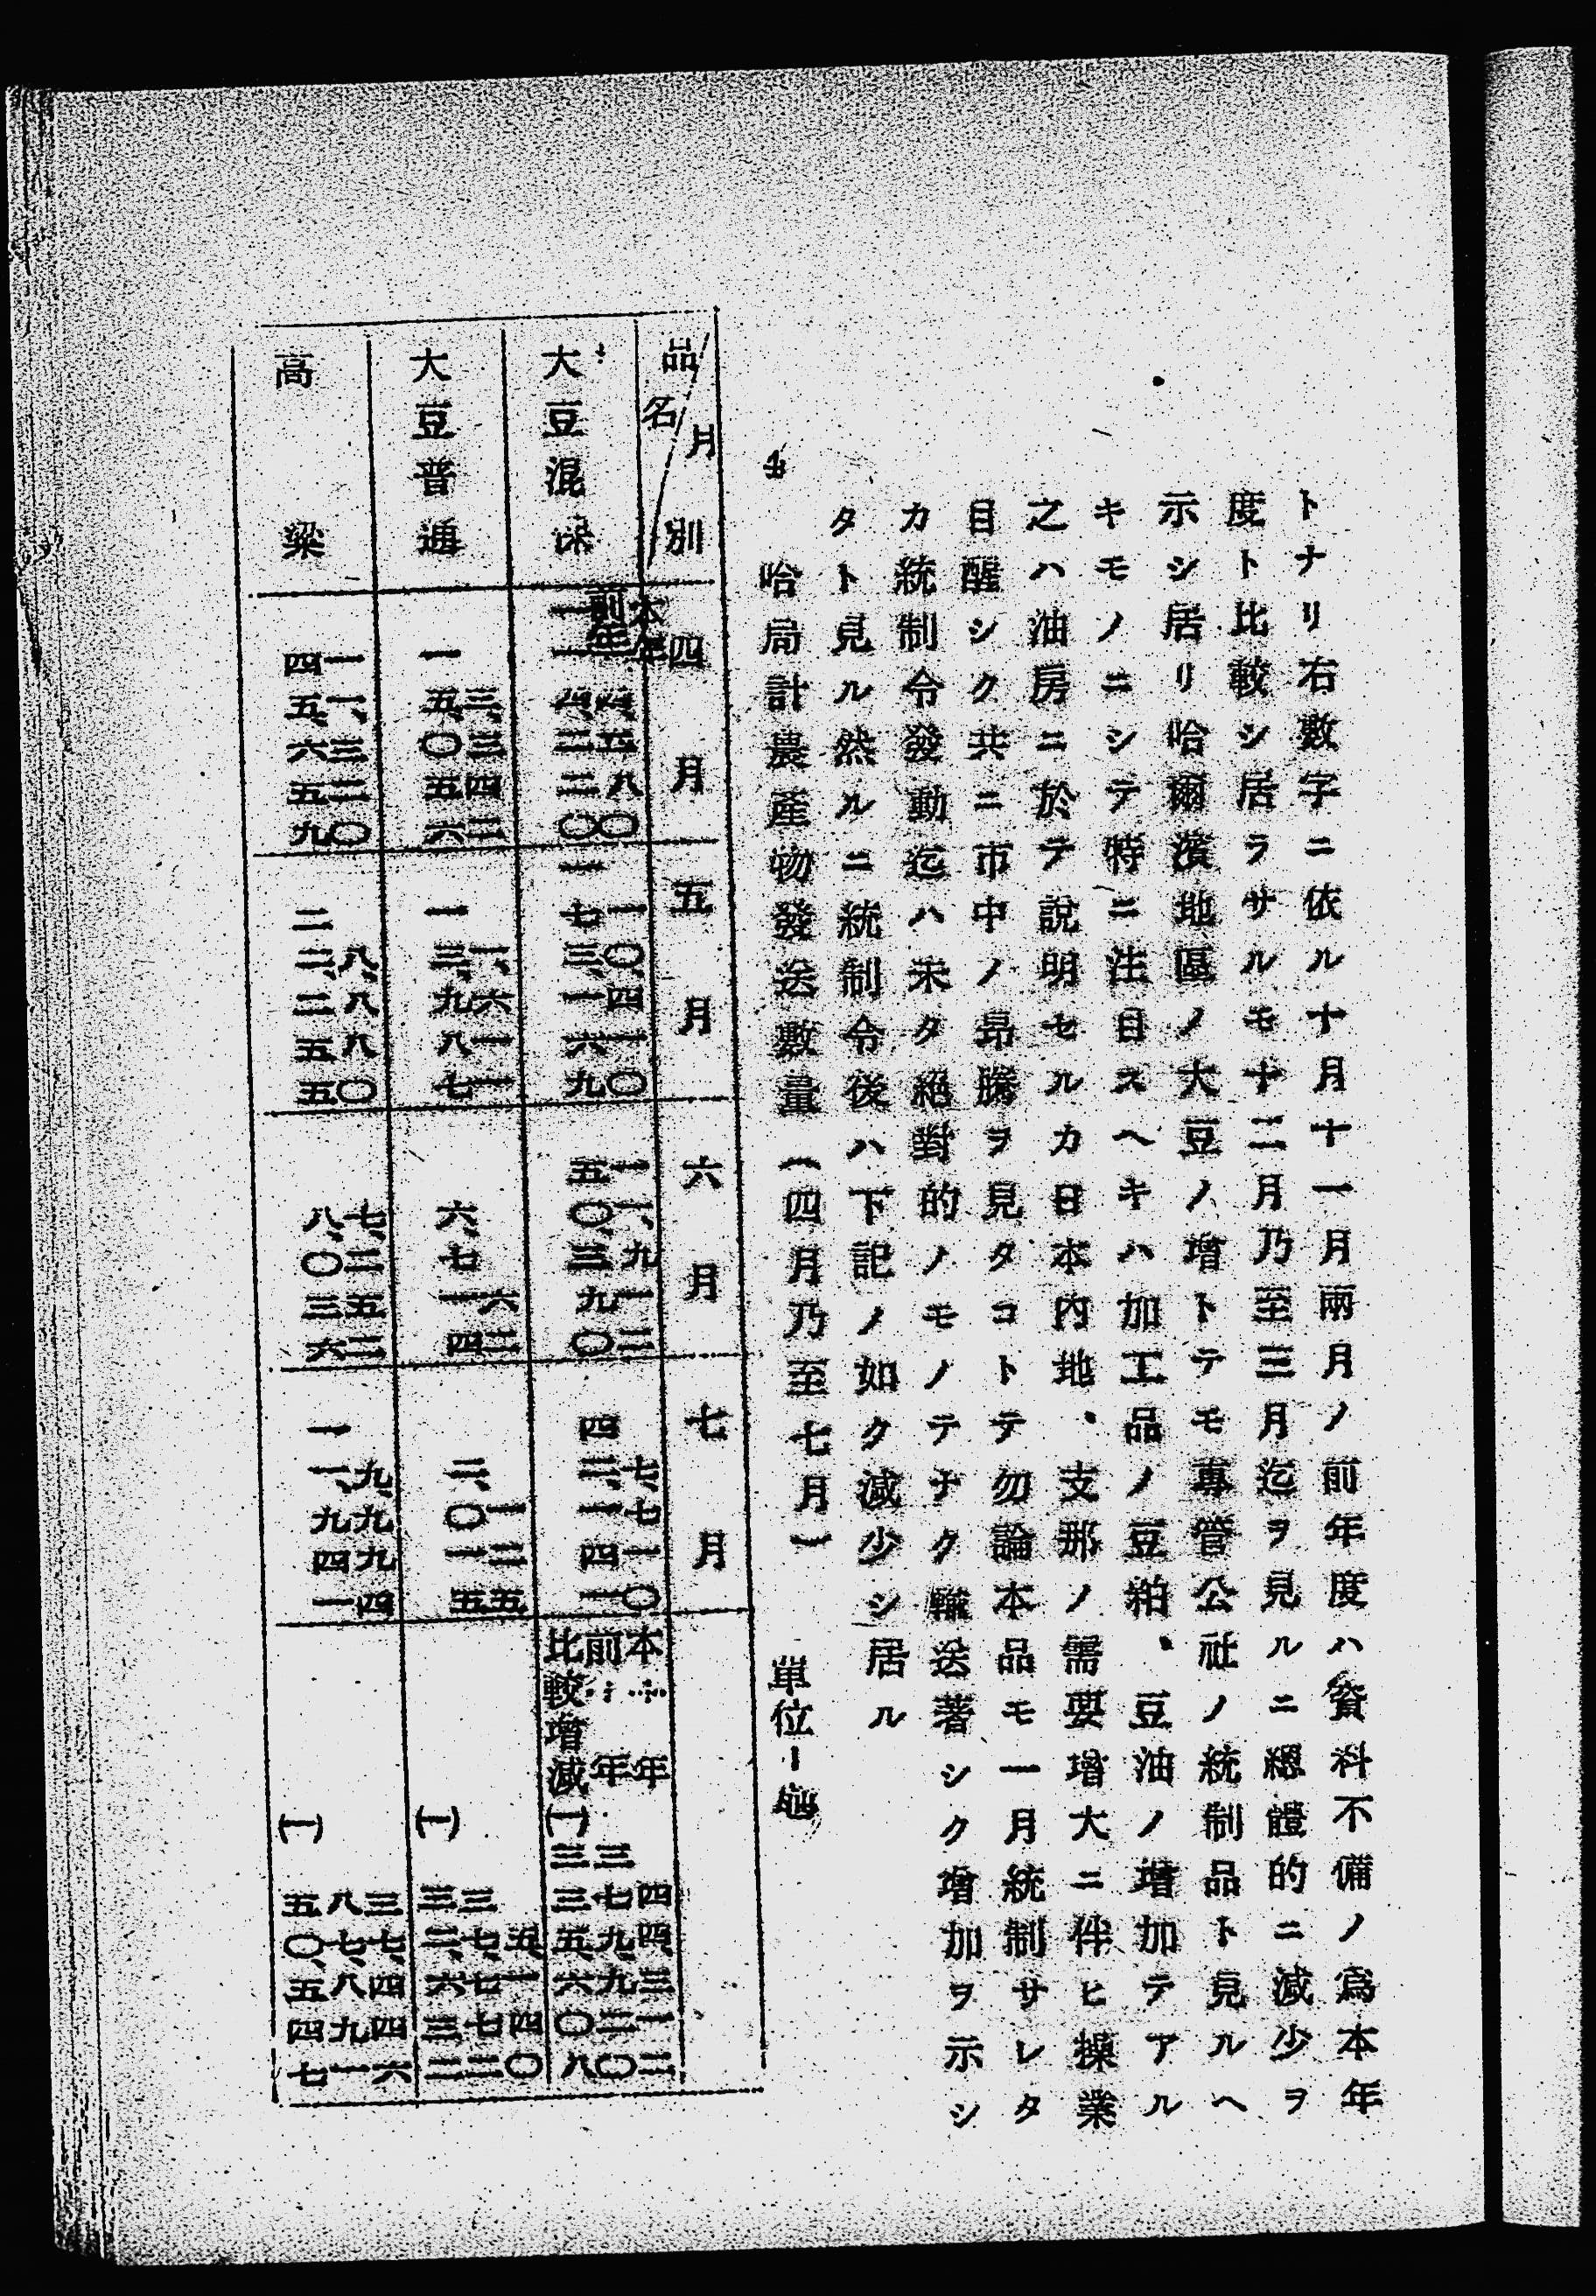 トナリ右數字ニ依ル十月十一月兩月ノ前年度ハ資料不備ノ爲本年
度ト比較シ居ラサルモ十二月乃至三月迄ヲ見ルニ總體的ニ減少ヲ
示シ居リ哈爾濱地區ノ大豆ノ增トテモ專管公社ノ統制品ト見ルヘ
キモノニシテ特ニ注目スヘキハ加工品ノ豆粕、豆油ノ增加テアル
之ハ油房ニ於テ說明セルカ日本內地、支那ノ需要增大ニ伴ヒ操業
目醒シク共ニ市中ノ昻騰ヲ見タコトテ勿論本品モ一月統制サレタ
カ統制令發動迄ハ未タ絕對的ノモノテナク輸送著シク增加ヲ示シ
タト見ル然ルニ統制令後ハ下記ノ如ク減少シ居ル
4 哈局計農產物發送數量(四月乃至七月) 單位ー瓲
品名 月別 四月 五月 六月 七月
大豆混保
本年 一四、五八〇 一〇、四一〇 一一、九一二 七、七一〇 本年 四四、三一二
前年 一一四、二二〇 一七三、一六九 五〇、三九〇 四二、一四一 前年 三七九、九二〇
比較增減 (一) 三三五、六〇八
大豆普通
三、三四二 一、六一一 六二 一二五 五、一四〇
一五、〇五六 一三、九八七 六、七一四 二、〇一五 三七、七七二
(一) 三二、六三二
高粱
一一、三二〇 八、八八〇 七、二五二 九、九九四 三七、四四六
四五、六五九 二二、二五五 八、〇三六 一一、九四一 八七、八九一
(一) 五〇、五四七